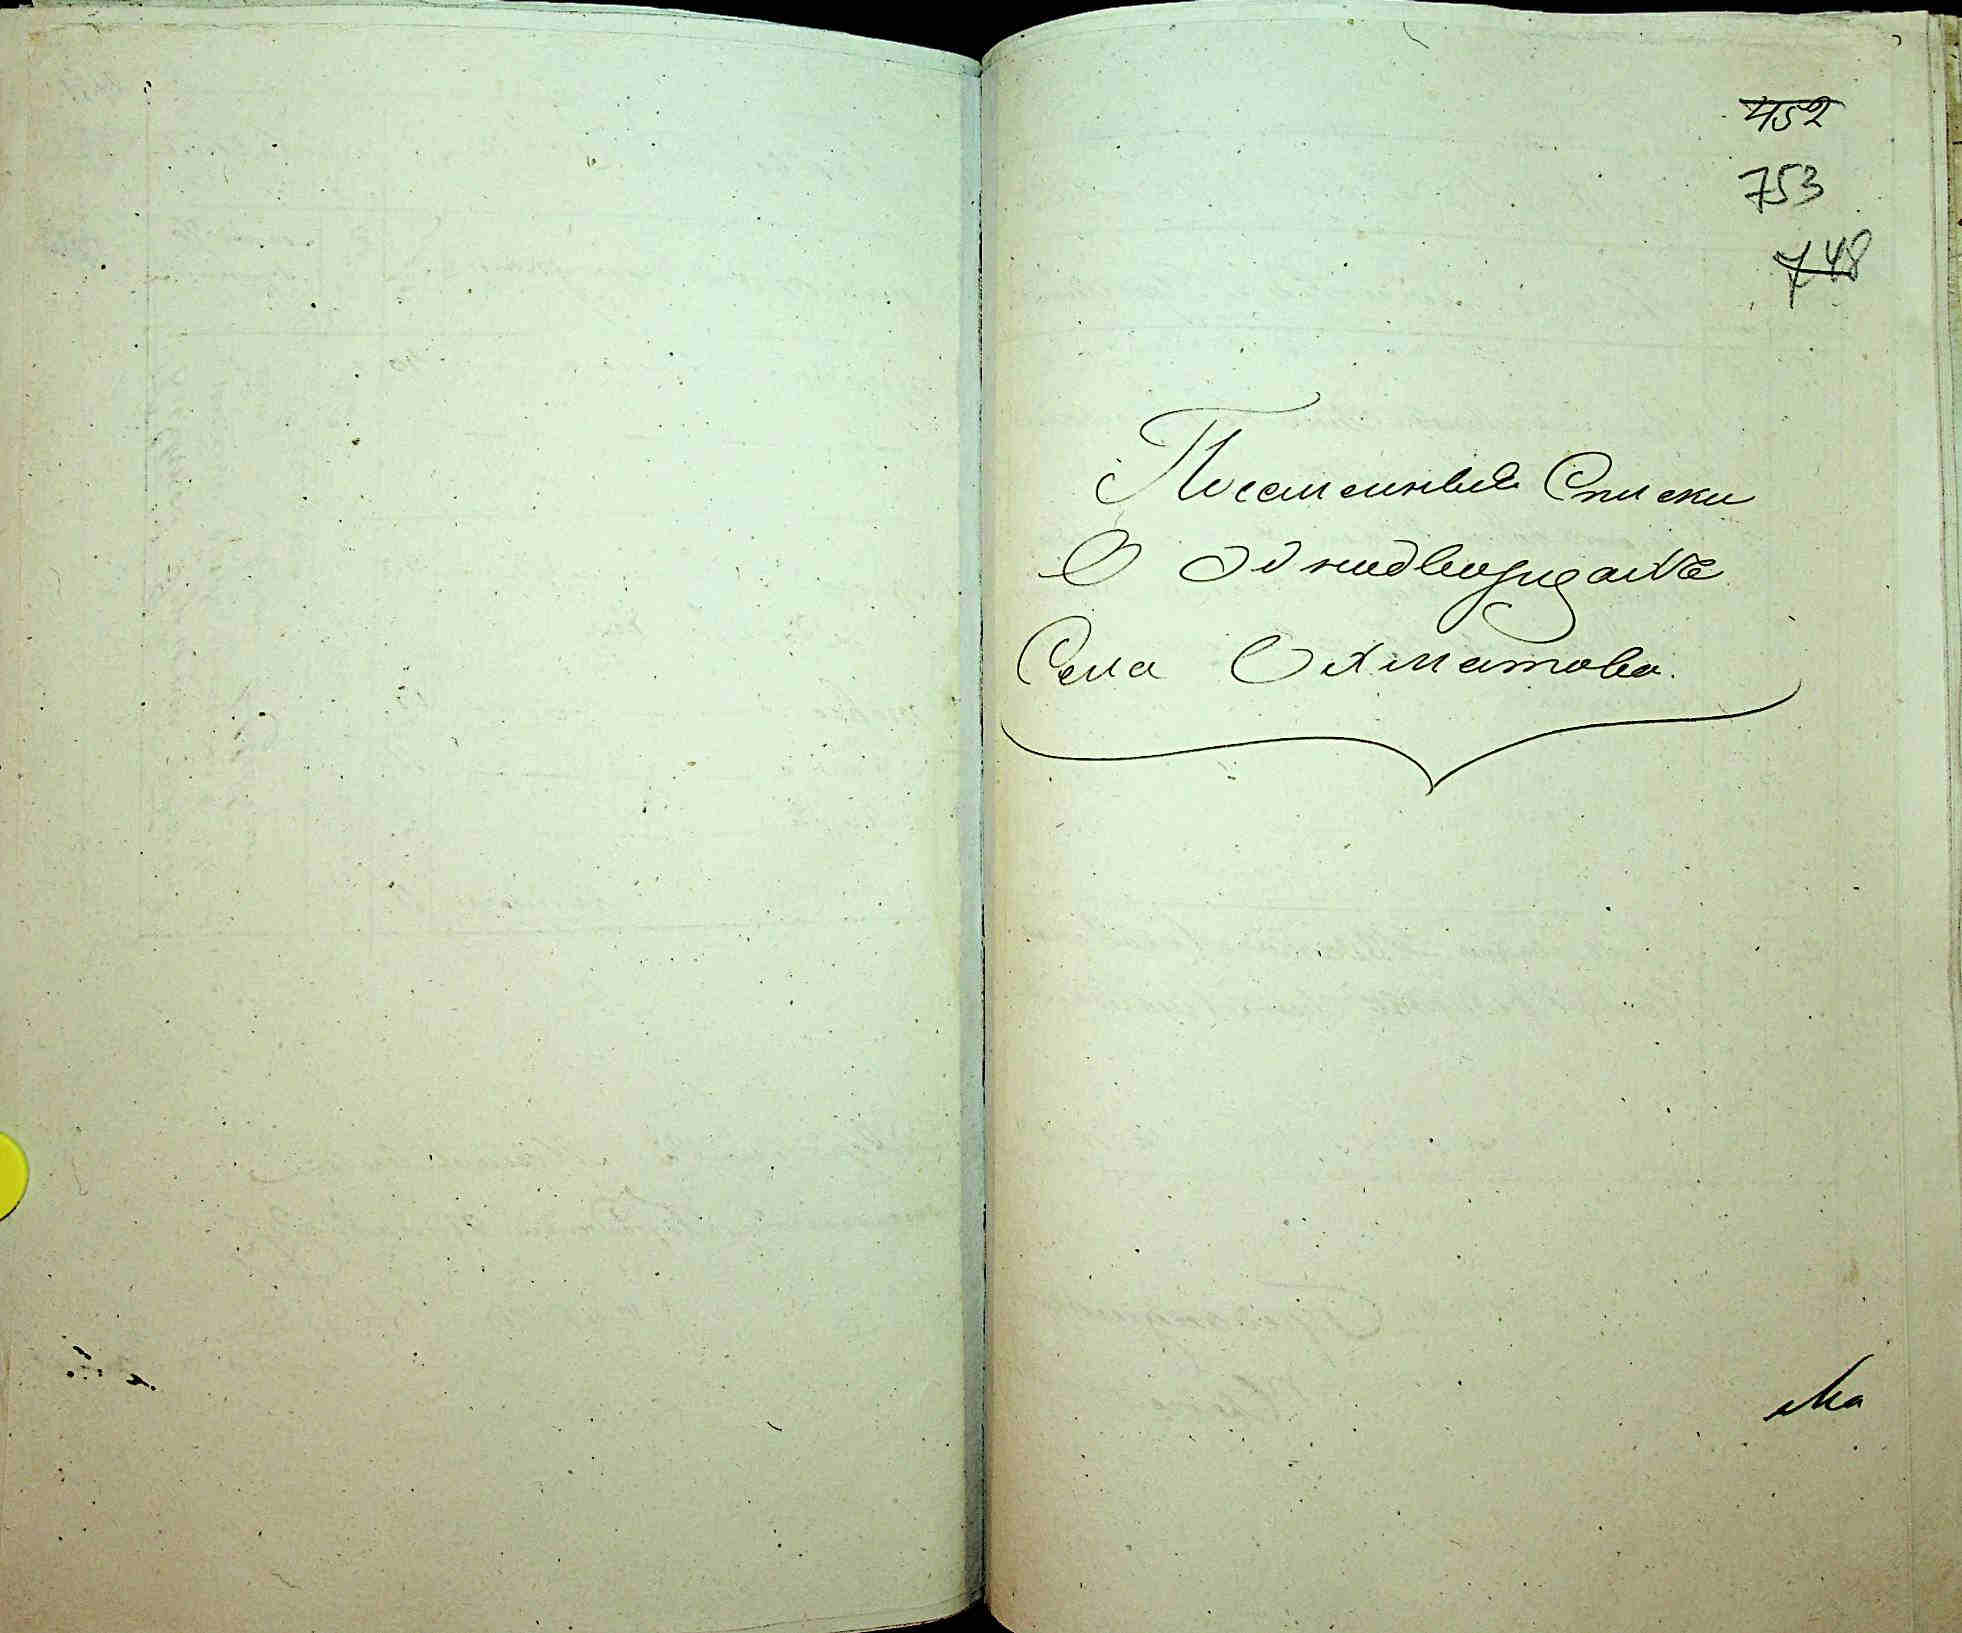 452
753
748
Посемейные Списки
О Однодворцахъ
Села Ахматова.